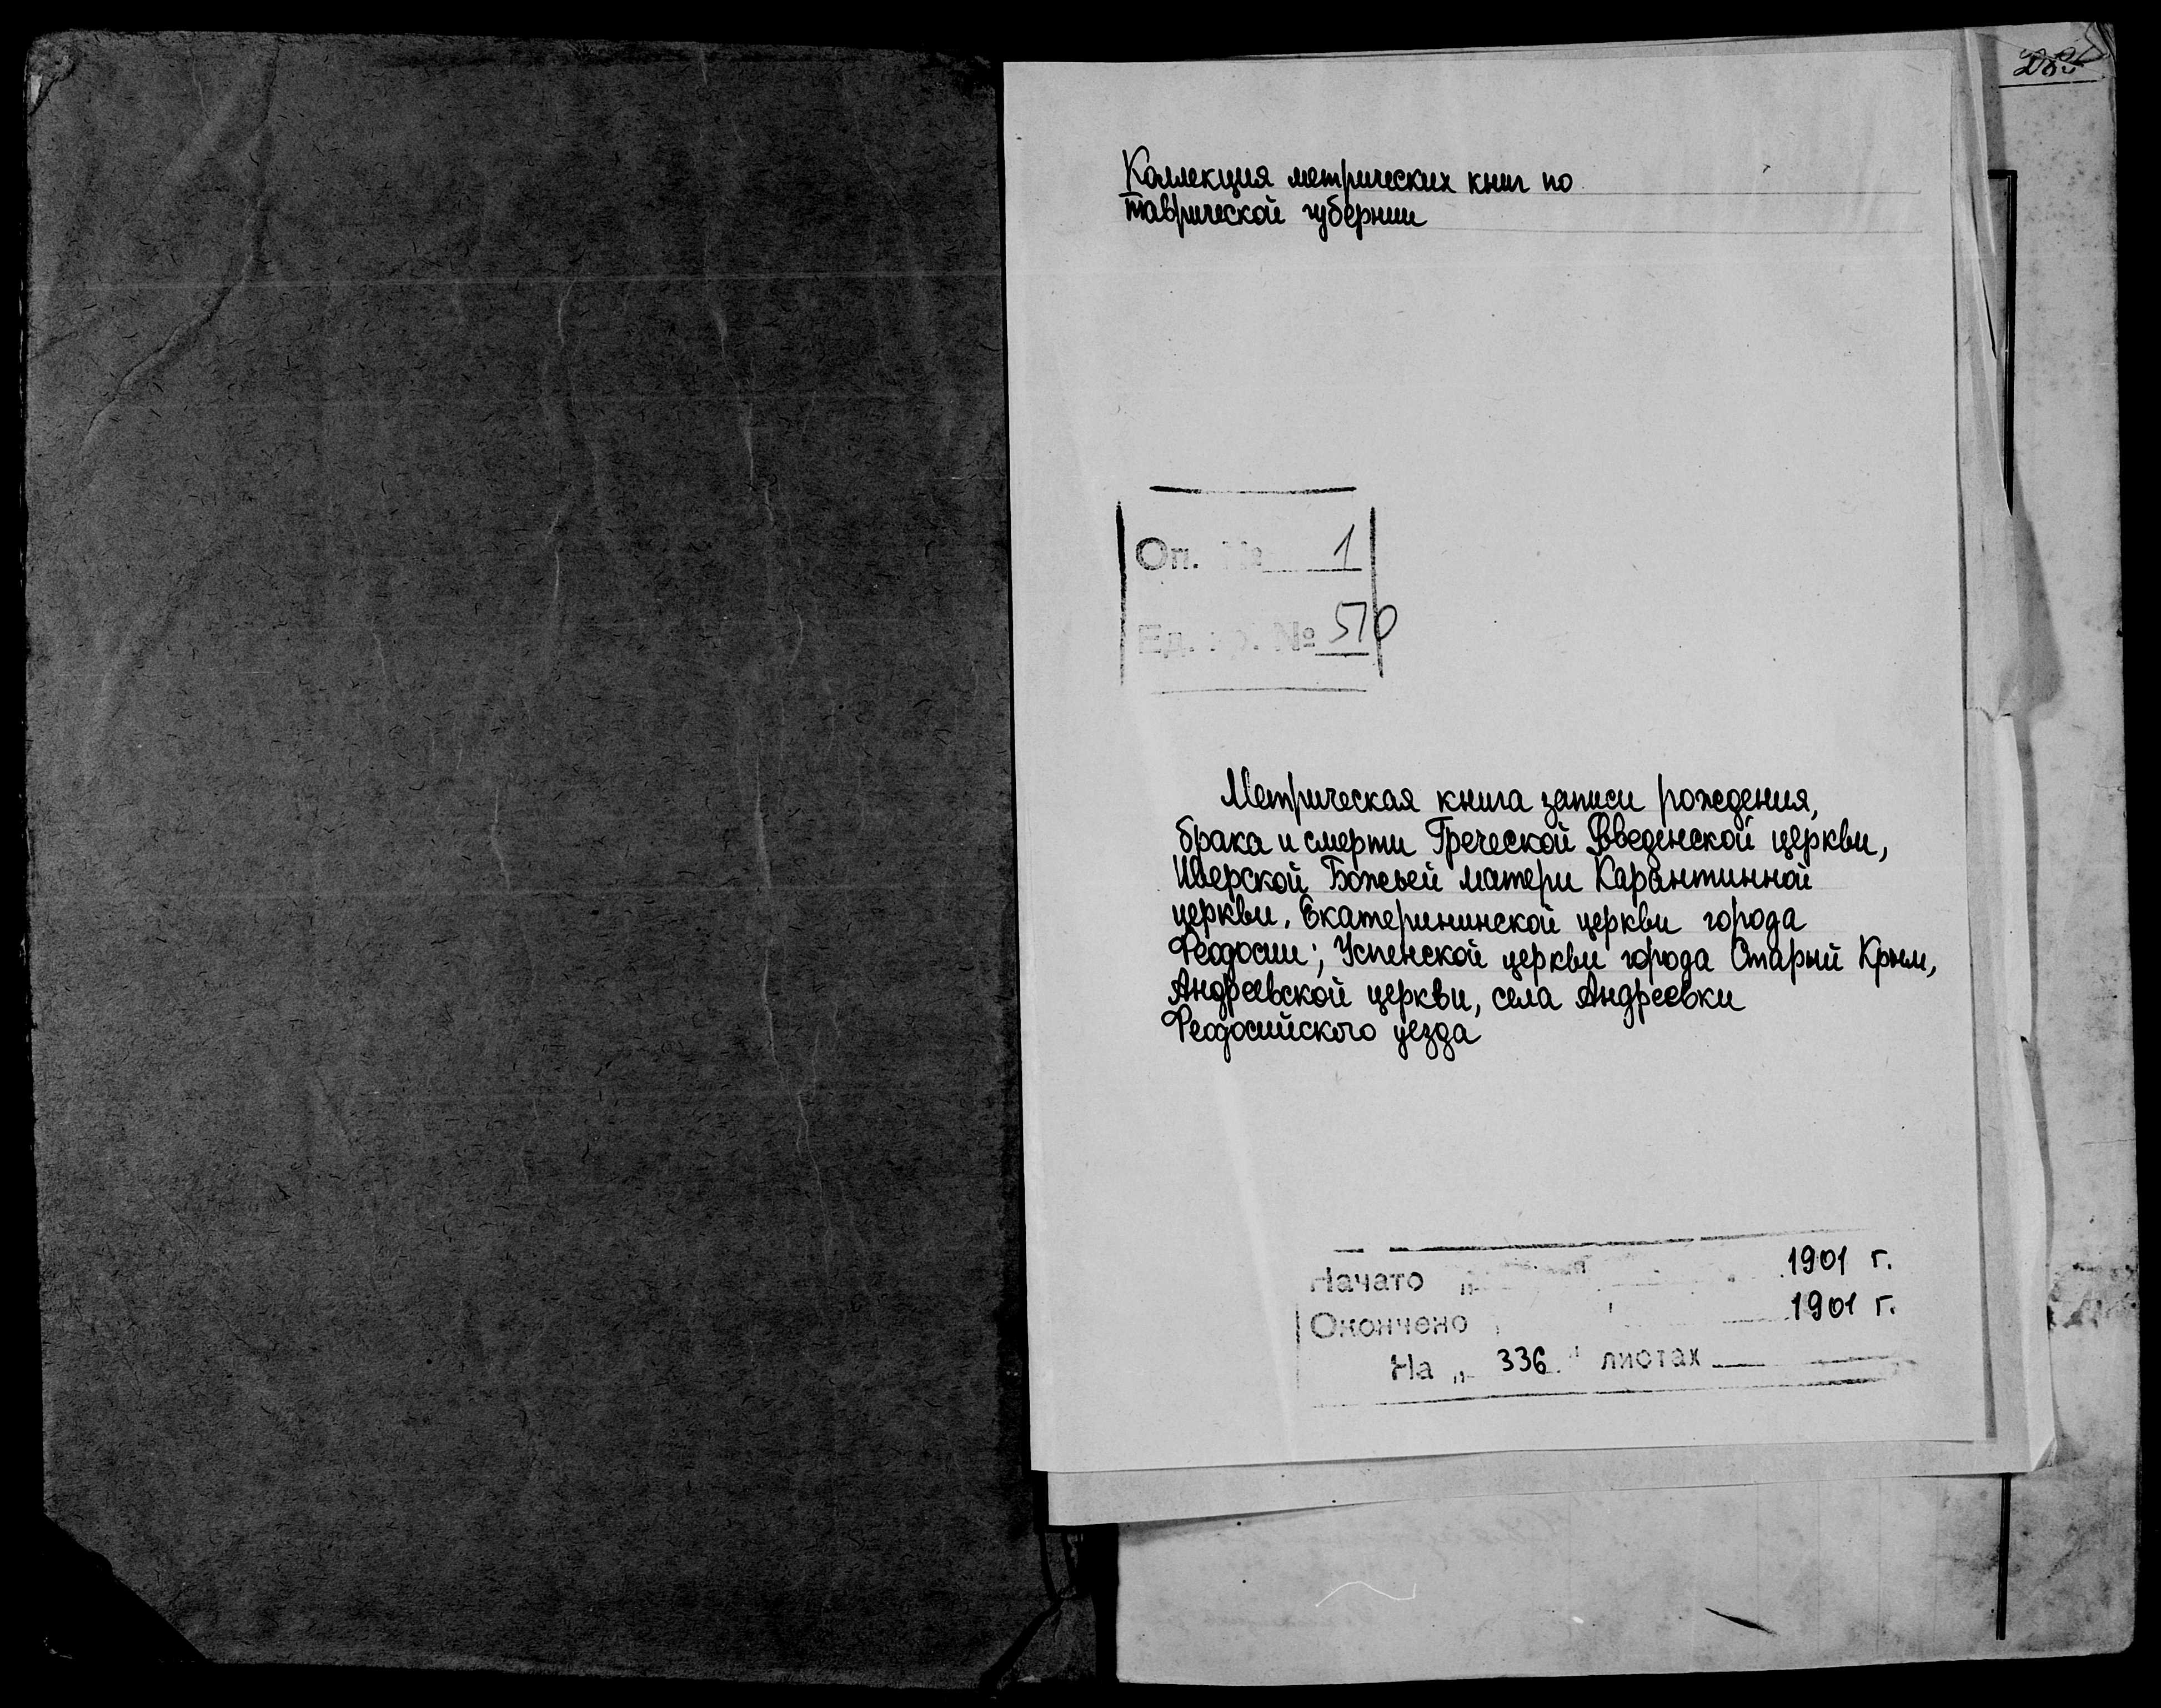 Коллекция метрических книг по
таврической губернии
Оп. № 1
Ед. хр. № 570
Метрическая книга записи рождения,
брака и смерти Греческой Введенской церкви,
Иверской Божьей матери Карантинной
церкви, Екатерининской церкви города
Феодосии; Успенской церкви города Старый Крым,
Андреевской церкви, села Андреевки
Феодосийского уезда
Начато " 1901 г.
Окончено 1901 г.
На „ 336 " листах